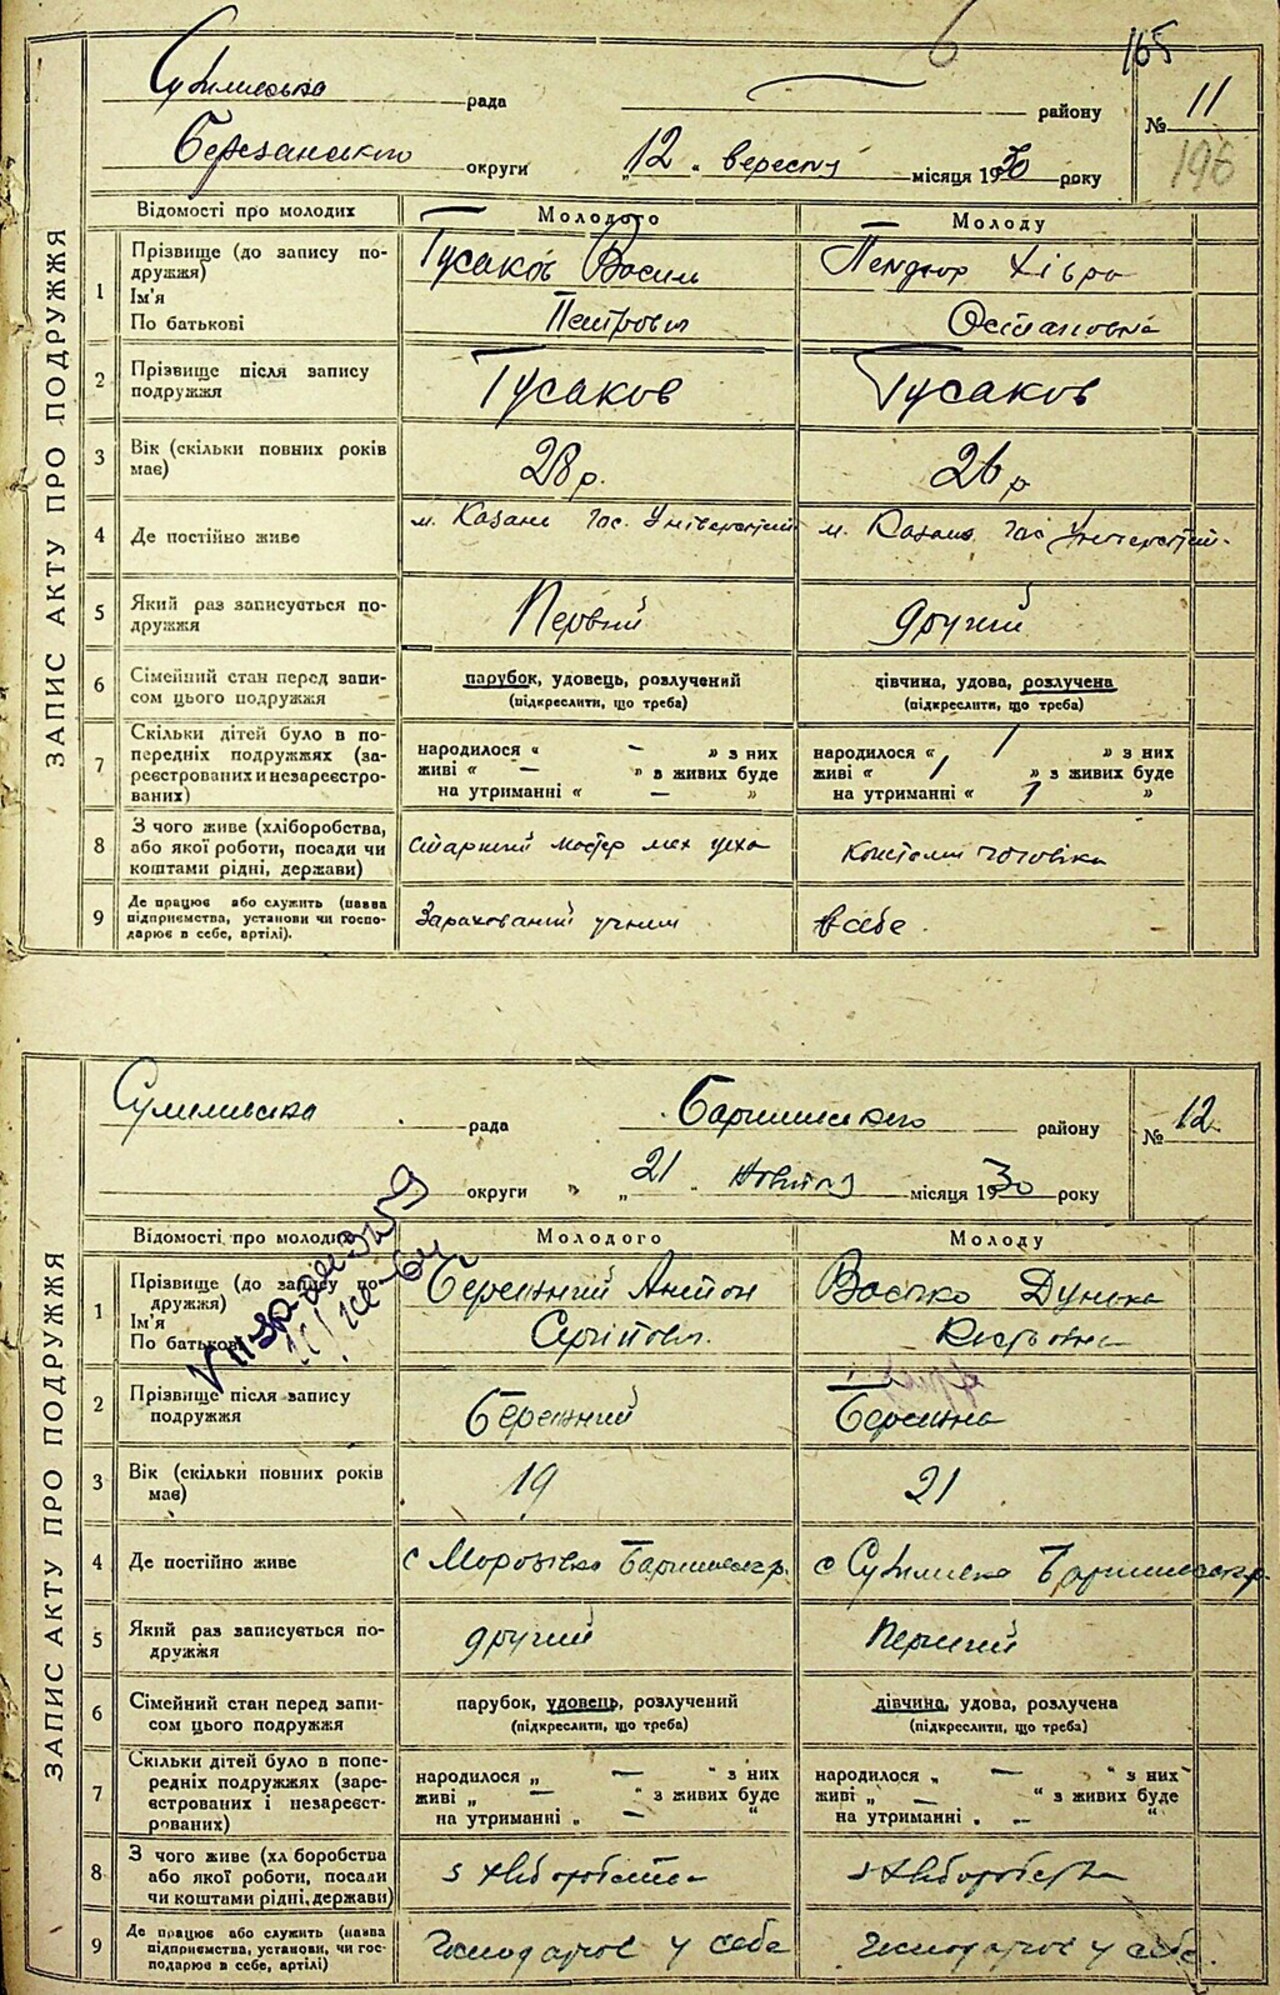 165
рада
району
№ 11
196
Березанського округи
„12" вересня місяця 1930 року
ЗАПИС АКТУ ПРО ПОДРУЖЖЯ
Відомості про молодих
Молодого
Молоду
1
Прізвище (до запису по-
дружжя)
Ім'я
По батькові
Гусаков Василь
Петрович
Хівря
Остаповна
2
Прізвище після запису
подружжя
Гусаков
Гусаков
3
Вік (скільки повних років
має)
28 р.
26 р
4
Де постійно живе
м. Казань Гос. Університет
м. Казань Гос Університет.
5
Який раз записується по-
дружжя
Первий
другий
6
Сімейний стан перед запи-
сом цього подружжя
парубок, удовець, розлучений
(підкреслити, що треба)
дівчина, удова, розлучена
(підкреслити, що треба)
7
Скільки дітей було в по-
передніх подружжях (за-
реєстрованих и незареєстро-
ваних)
народилося « – » з них
живі « – » в живих буде
на утриманні « – »
народилося « 1 » з них
живі « 1 » з живих буде
на утриманні « 1 »
8
З чого живе (хліборобства,
або якої роботи, посади чи
коштами рідні, держави)
старший мастер мех цеха
коштами чоловіка
9
Де працює або служить (назва
підприємства, установи чи госпо-
дарює в себе, артілі).
Зарахований учнем
в себе
рада
району
№ 12
округи
„21" жовтня місяця 1930 року
ЗАПИС АКТУ ПРО ПОДРУЖЖЯ
Відомості про молодих
Молодого
Молоду
1
Прізвище (до запису по-
дружжя)
Ім'я
По батькові
Бережний Антон
Дунька
2
Прізвище після запису
подружжя
Бережний
Бережна
3
Вік (скільки повних років
має)
19
21
4
Де постійно живе
с Морозівка
с
5
Який раз записується по-
дружжя
другий
перший
6
Сімейний стан перед запи-
сом цього подружжя
парубок, удовець, розлучений
(підкреслити, що треба)
дівчина, удова, розлучена
(підкреслити, що треба)
7
Скільки дітей було в попе-
редніх подружжях (заре-
єстрованих і незареєст-
рованих)
народилося „ – " з них
живі „ – " з живих буде
на утриманні „ – "
народилося „ – " з них
живі „ – " з живих буде
на утриманні „ – "
8
З чого живе (хл боробства
або якої роботи, посади
чи коштами рідні, держави)
з хліборобства
з хліборобства
9
Де працює або служить (назва
підприємства, установи, чи гос-
подарює в себе, артілі)
Господарює у себе
Господарює у себе.